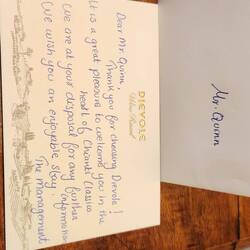 DIEVOLE
Dear Mr. Quinn,
Thank you for choosing Dievole!
It is a great pleasure to welcome you in the
heart of Chianti Classico
We are at your disposal for any further
information
We wish you an enjoyable stay
The management
Mr. Quinn